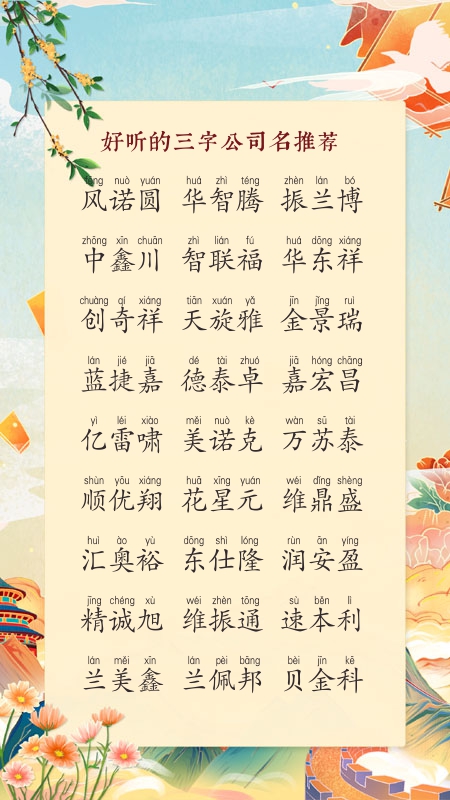 好听的三字公司名推荐
fēng nuò yuán huá zhì téng zhèn lán bó
风诺圆 华智腾 振兰博
zhōng xīn chuān zhì lián fú huá dōng xiáng
中鑫川 智联福 华东祥
chuàng qí xiáng tiān xuán yǎ jīn jǐng ruì
创奇祥 天旋雅 金景瑞
lán jié jiā dé tài zhuó jiā hóng chāng
蓝捷嘉 德泰卓 嘉宏昌
yì léi xiào měi nuò kè wàn sū tài
亿雷啸 美诺克 万苏泰
shùn yōu xiáng huā xīng yuán wéi dǐng shèng
顺优翔 花星元 维鼎盛
huì ào yù dōng shì lóng rùn ān yíng
汇奥裕 东仕隆 润安盈
jīng chéng xù wéi zhèn tōng sù běn lì
精诚旭 维振通 速本利
lán měi xīn lán pèi bāng bèi jīn kē
兰美鑫 兰佩邦 贝金科